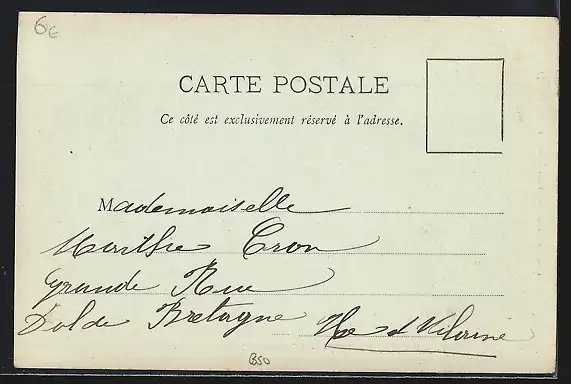 6€
CARTE POSTALE
Ce côté est exclusivement réservé à l'adresse.
Mademoiselle
Marthe Cron
Grande Rue
Dol de Bretagne Ille et Vilaine
B50